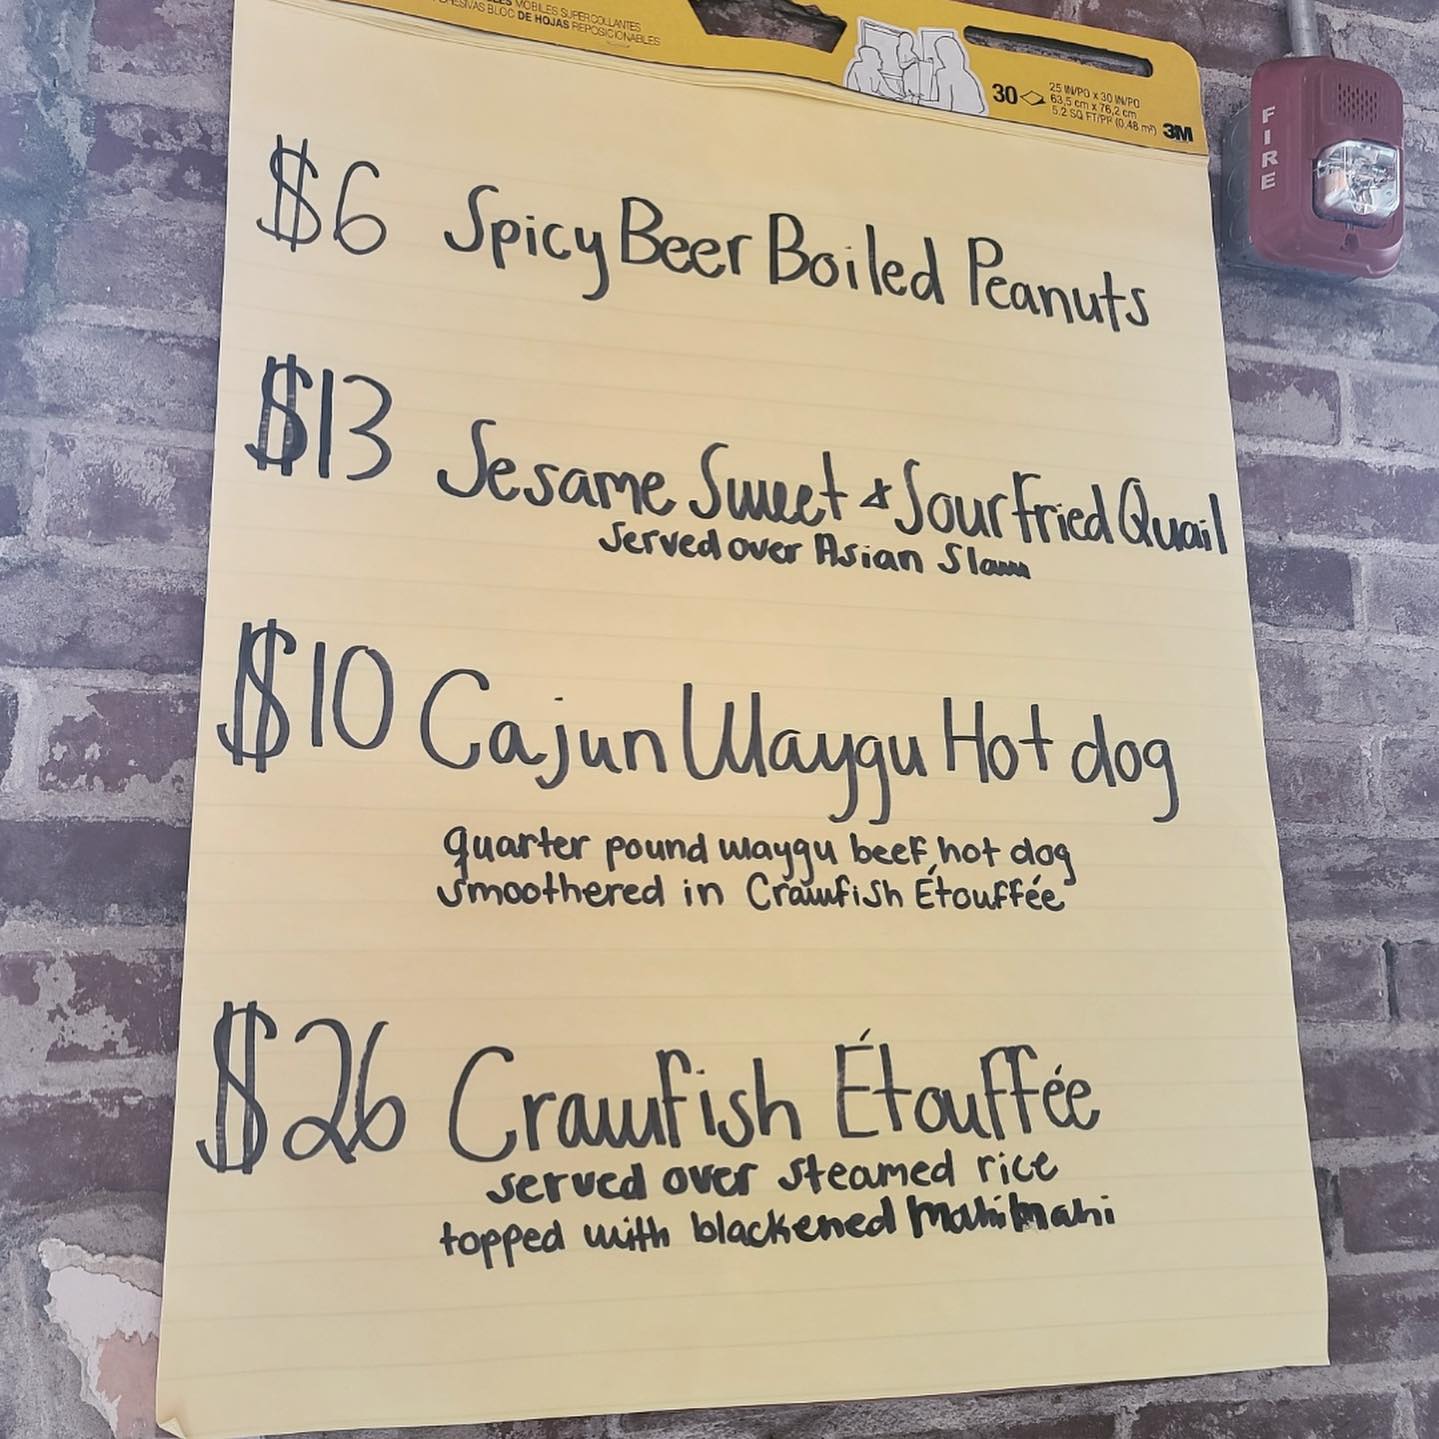 MOBILES SUPERCOLLANTES
ADHESIVAS BLOC DE HOJAS REPOSICIONABLES
30
25 IN/PO x 30 IN/PO
63,5 cm x 76,2 cm
5.2 SQ FT/PI² (0,48 m²)
3M
FIRE
$6 Spicy Beer Boiled Peanuts
$13 Sesame Sweet & Sour Fried Quail
Served over Asian Slaw
$10 Cajun Waygu Hot dog
quarter pound waygu beef hot dog
smoothered in Crawfish Étouffée
$26 Crawfish Étouffée
served over steamed rice
topped with blackened Mahi Mahi